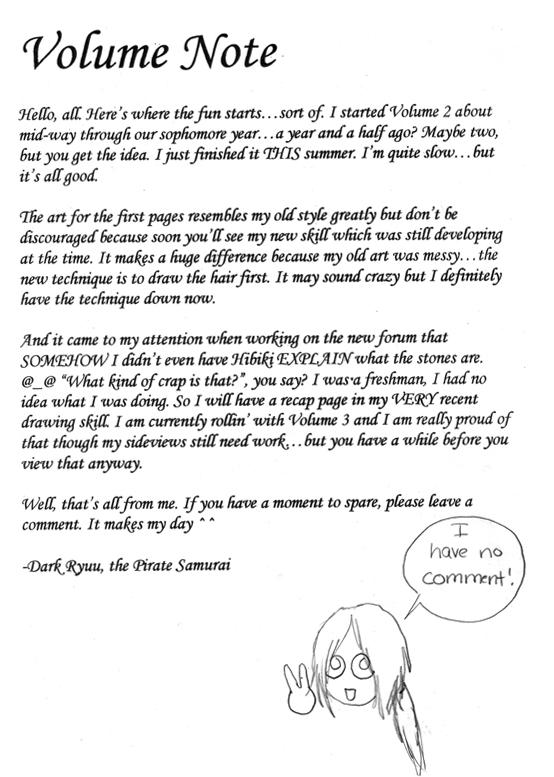 Volume Note
Hello, all. Here's where the fun starts...sort of. I started Volume 2 about
mid-way through our sophomore year...a year and a half ago? Maybe two,
but you get the idea. I just finished it THIS summer. I'm quite slow...but
it's all good.
The art for the first pages resembles my old style greatly but don't be
discouraged because soon you'll see my new skill which was still developing
at the time. It makes a huge difference because my old art was messy...the
new technique is to draw the hair first. It may sound crazy but I definitely
have the technique down now.
And it came to my attention when working on the new forum that
SOMEHOW I didn't even have Hibiki EXPLAIN what the stones are.
@_@ "What kind of crap is that?", you say? I was a freshman, I had no
idea what I was doing. So I will have a recap page in my VERY recent
drawing skill. I am currently rollin' with Volume 3 and I am really proud of
that though my sideviews still need work...but you have a while before you
view that anyway.
Well, that's all from me. If you have a moment to spare, please leave a
comment. It makes my day ^^
-Dark Ryuu, the Pirate Samurai
I
have no
comment!